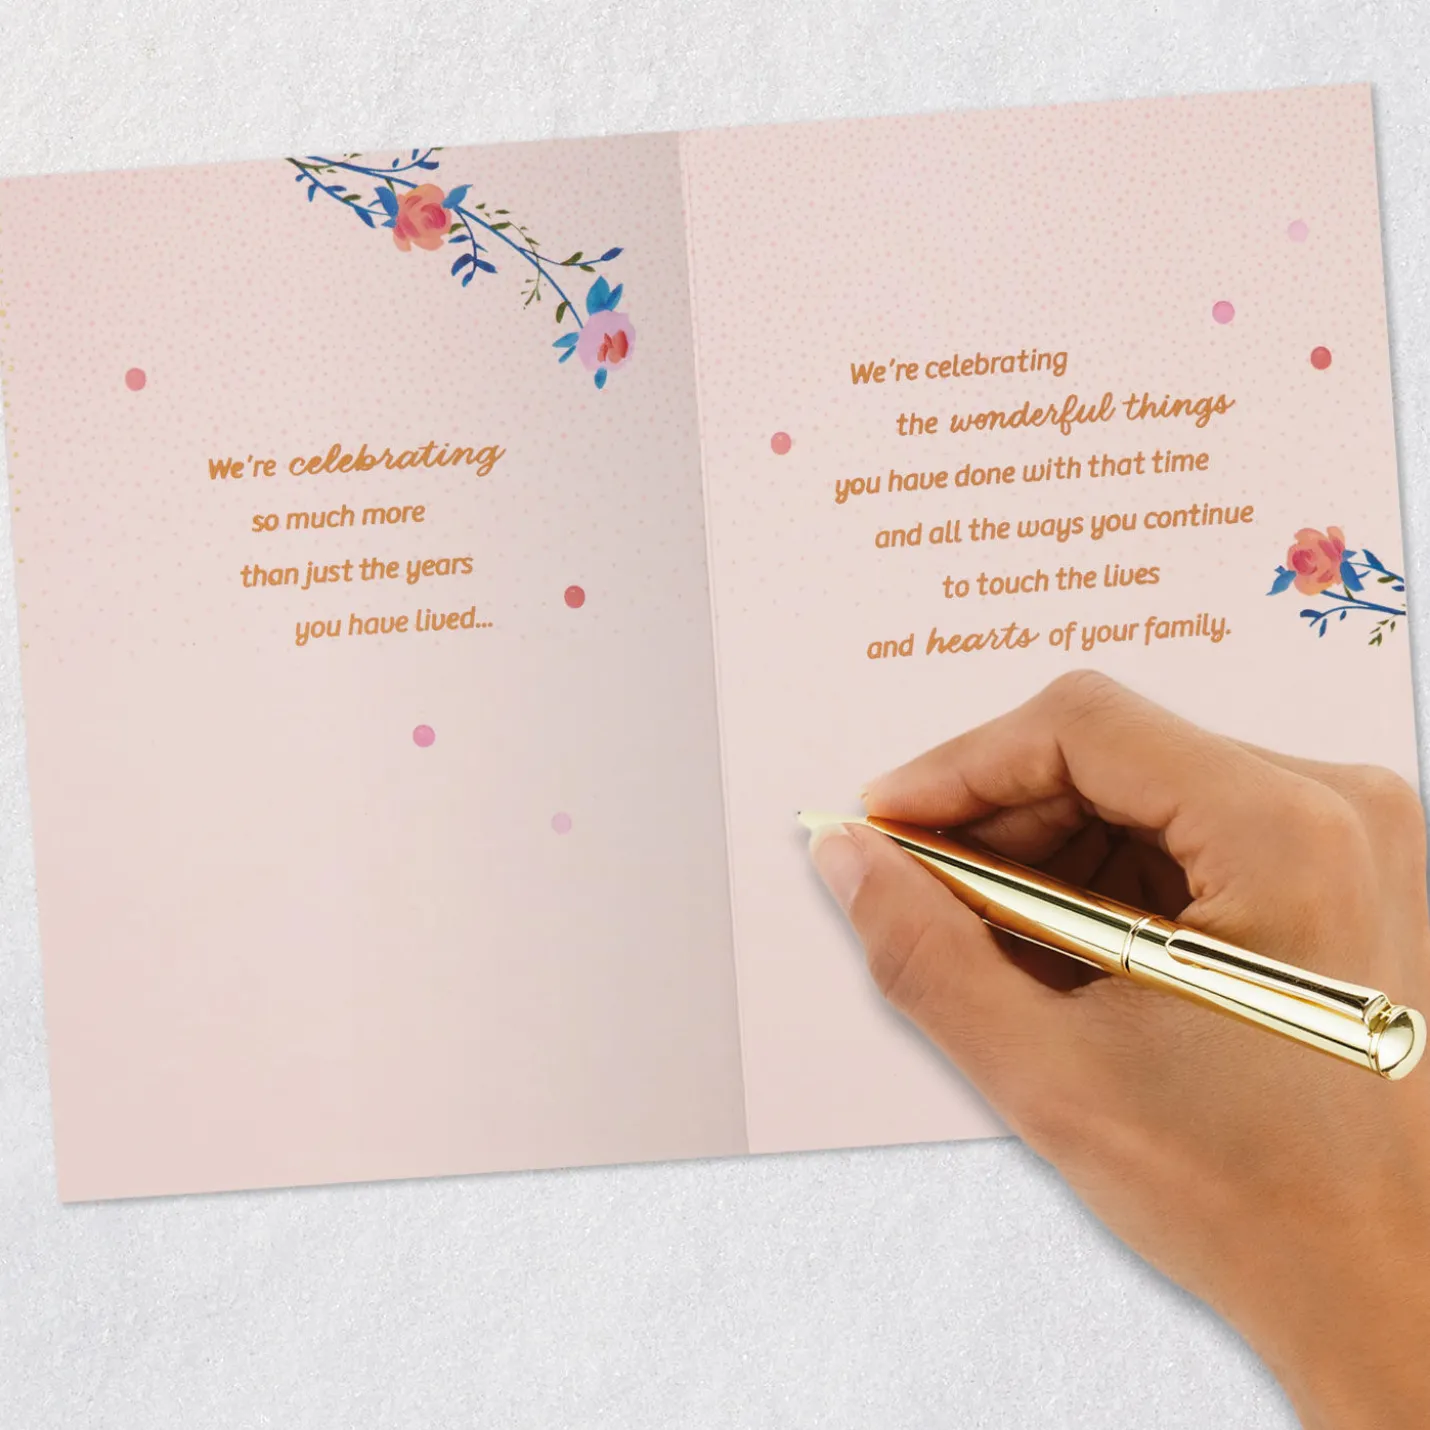 We're celebrating
so much more
than just the years
you have lived...
We're celebrating
the wonderful things
you have done with that time
and all the ways you continue
to touch the lives
and hearts of your family.